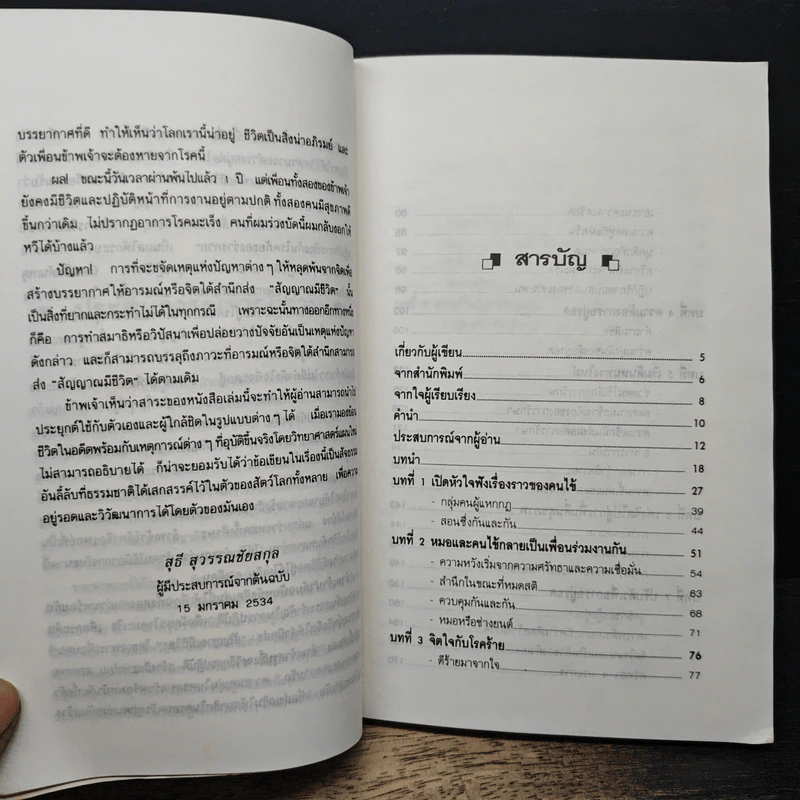 บรรยากาศที่ดี ทำให้เห็นว่าโลกเรานี้น่าอยู่ ชีวิตเป็นสิ่งน่าอภิรมย์ และ
ตัวเพื่อนข้าพเจ้าจะต้องหายจากโรคนี้
ผล! ขณะนี้วันเวลาผ่านพ้นไปแล้ว 1 ปี แต่เพื่อนทั้งสองของข้าพเจ้า
ยังคงมีชีวิตและปฏิบัติหน้าที่การงานอยู่ตามปกติ ทั้งสองคนมีสุขภาพดี
ขึ้นกว่าเดิม ไม่ปรากฏอาการโรคมะเร็ง คนที่ผมร่วงบัดนี้ผมกลับงอกให้
หวีได้บ้างแล้ว
ปัญหา! การที่จะขจัดเหตุแห่งปัญหาต่างๆ ให้หลุดพ้นจากจิตเพื่อ
สร้างบรรยากาศให้อารมณ์หรือจิตใต้สำนึกส่ง "สัญญาณมีชีวิต" นั้น
เป็นสิ่งที่ยากและกระทำไม่ได้ในทุกกรณี เพราะฉะนั้นทางออกอีกทางหนึ่ง
ก็คือ การทำสมาธิหรือวิปัสนาเพื่อปล่อยวางปัจจัยอันเป็นเหตุแห่งปัญหา
ดังกล่าว และก็สามารถบรรลุถึงภาวะที่อารมณ์หรือจิตใต้สำนึกสามารถ
ส่ง "สัญญาณมีชีวิต" ได้ตามเดิม
ข้าพเจ้าเห็นว่าสาระของหนังสือเล่มนี้จะทำให้ผู้อ่านสามารถนำไป
ประยุกต์ใช้กับตัวเองและผู้ใกล้ชิดในรูปแบบต่างๆ ได้ เมื่อเรามองย้อน
ชีวิตในอดีตพร้อมกับเหตุการณ์ต่างๆ ที่อุบัติขึ้นจริงโดยวิทยาศาสตร์แผนใหม่
ไม่สามารถอธิบายได้ ก็น่าจะยอมรับได้ว่าข้อเขียนในเรื่องนี้เป็นสัจธรรม
อันลี้ลับที่ธรรมชาติได้เสกสรรค์ไว้ในตัวของสัตว์โลกทั้งหลาย เพื่อความ
อยู่รอดและวิวัฒนาการได้โดยตัวของมันเอง
สุธี สุวรรณชัยสกุล
ผู้มีประสบการณ์จากต้นฉบับ
15 มกราคม 2534
สารบัญ
เกี่ยวกับผู้เขียน 5
จากสำนักพิมพ์ 6
จากใจผู้เรียบเรียง 8
คำนำ 10
ประสบการณ์จากผู้อ่าน 12
บทนำ 18
บทที่ 1 เปิดหัวใจฟังเรื่องราวของคนไข้ 27
- กลุ่มคนผู้แหกกฎ 39
- สอนซึ่งกันและกัน 44
บทที่ 2 หมอและคนไข้กลายเป็นเพื่อนร่วมงานกัน 51
- ความหวังเริ่มจากความศรัทธาและความเชื่อมั่น 54
- สำนึกในขณะที่หมดสติ 63
- ควบคุมกันและกัน 68
- หมอหรือช่างยนต์ 71
บทที่ 3 จิตใจกับโรคร้าย 76
- ดีร้ายมาจากใจ 77